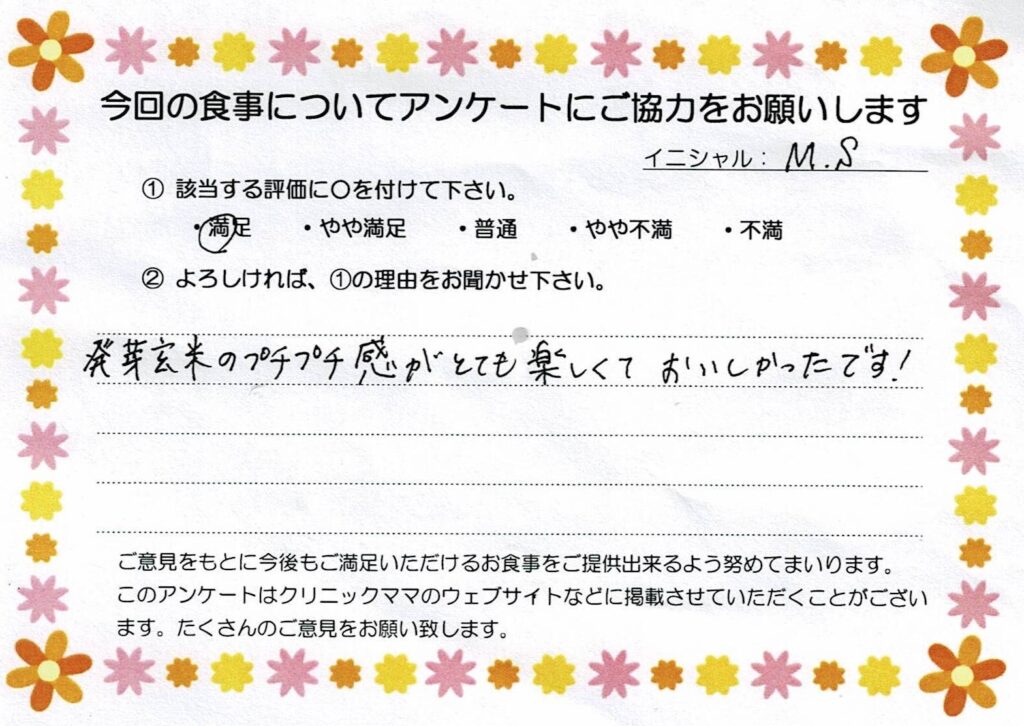 今回の食事についてアンケートにご協力をお願いします
イニシャル： M.S
① 該当する評価に〇を付けて下さい。
・満足 ・やや満足 ・普通 ・やや不満 ・不満
② よろしければ、①の理由をお聞かせ下さい。
発芽玄米のプチプチ感がとても楽しくて おいしかったです!
ご意見をもとに今後もご満足いただけるお食事をご提供出来るよう努めてまいります。
このアンケートはクリニックママのウェブサイトなどに掲載させていただくことがござい
ます。たくさんのご意見をお願い致します。